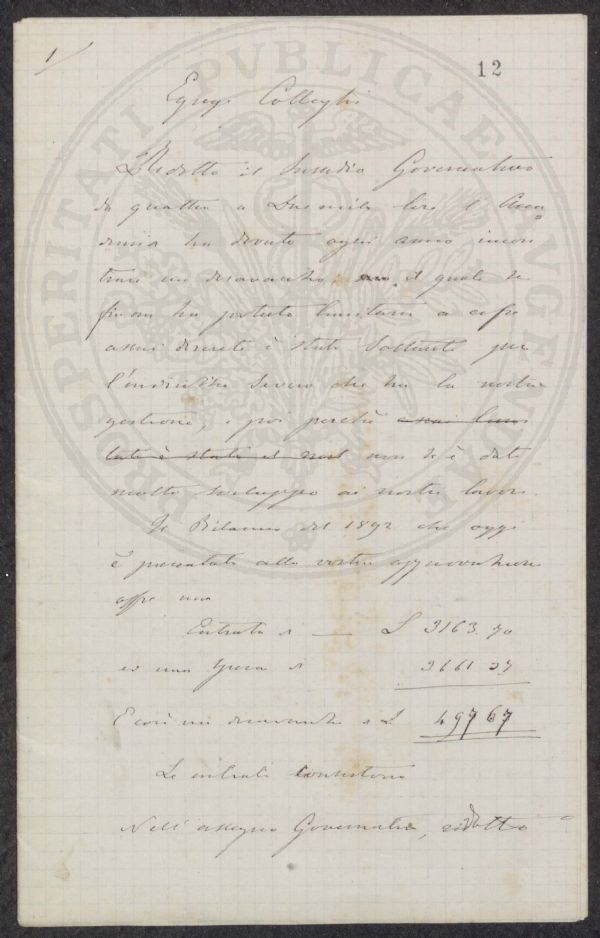 1
12
Egregi Colleghi
Ridotto il Sussidio Governativo
da quattro a Due mila lire l'Acca
demia ha dovuto ogni anno incon
trare un disavanzo, il quale se
fin ora ha potuto limitarsi a cifre
assai discrete è stato soltanto per
l'indirizzo severo che ha la nostra
gestione, e poi perchè assai limi
tato è stato il nost non se è dato
molto sviluppo ai nostri lavori.
Il Bilancio del 1892 che oggi
è presentato alla vostra approvazione
offre una
Entrata di — £ 3163.70
ed una spesa di 3661 37
E così un disavanzo di £ 497 67
Le entrate consistono
Nell'assegno Governativo, ridotto
PROSPERITATI PVBLICAE AVGENDAE